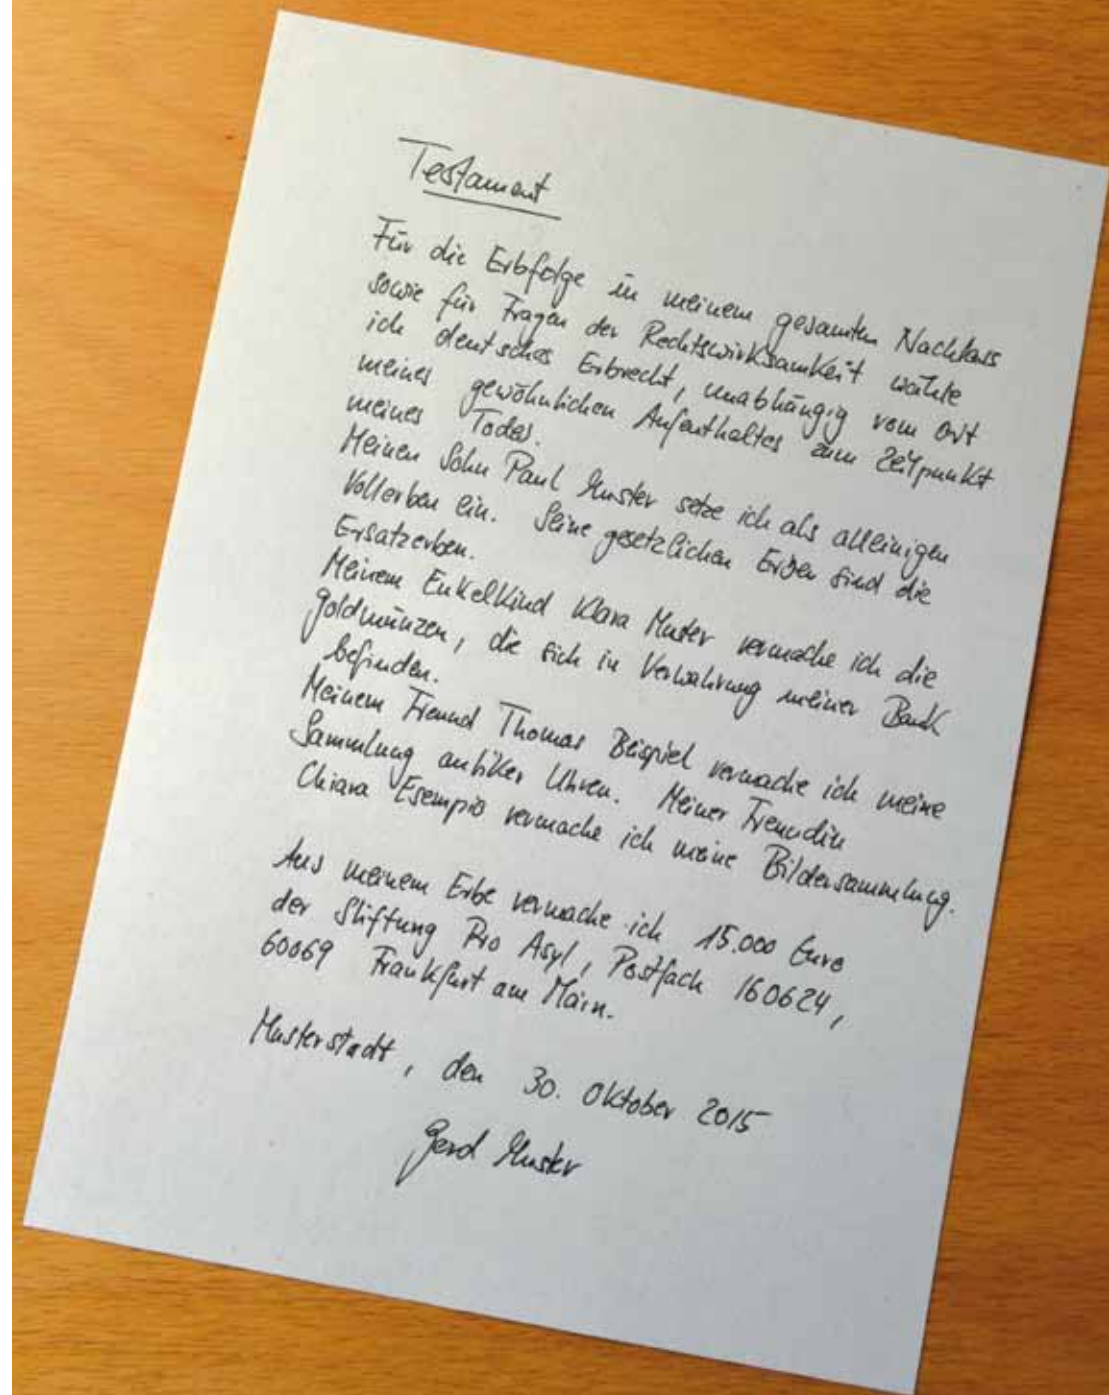 Testament
Für die Erbfolge in meinem gesamten Nachlass
sowie für Fragen der Rechtswirksamkeit wähle
ich deutsches Erbrecht, unabhängig vom Ort
meines gewöhnlichen Aufenthaltes zum Zeitpunkt
meines Todes.
Meinen Sohn Paul Muster setze ich als alleinigen
Vollerben ein. Seine gesetzlichen Erben sind die
Ersatzerben.
Meinem Enkelkind Klara Muster vermache ich die
Goldmünzen, die sich in Verwahrung meiner Bank
befinden.
Meinem Freund Thomas Beispiel vermache ich meine
Sammlung antiker Uhren. Meiner Freundin
Chiara Esempio vermache ich meine Bildersammlung.
Aus meinem Erbe vermache ich 15.000 Euro
der Stiftung Pro Asyl, Postfach 160624,
60069 Frankfurt am Main.
Musterstadt, den 30. Oktober 2015
Gerd Muster